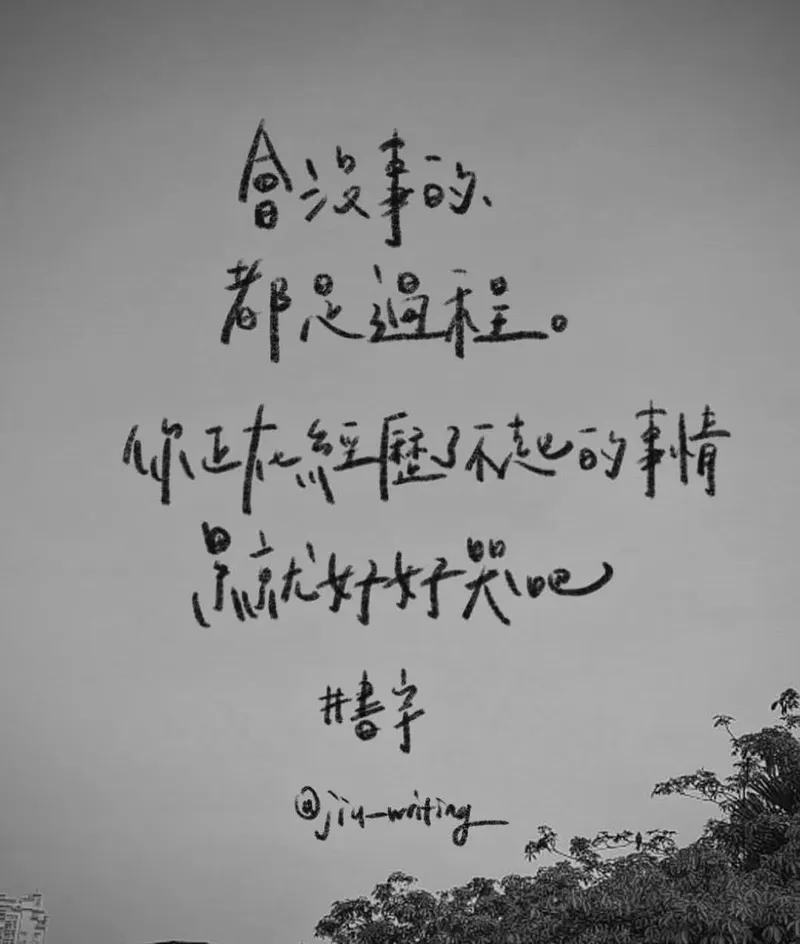 會沒事的、
都是過程。
你正在經歷了不起的事情
累就好好哭吧
#書宇
@jiu_writing